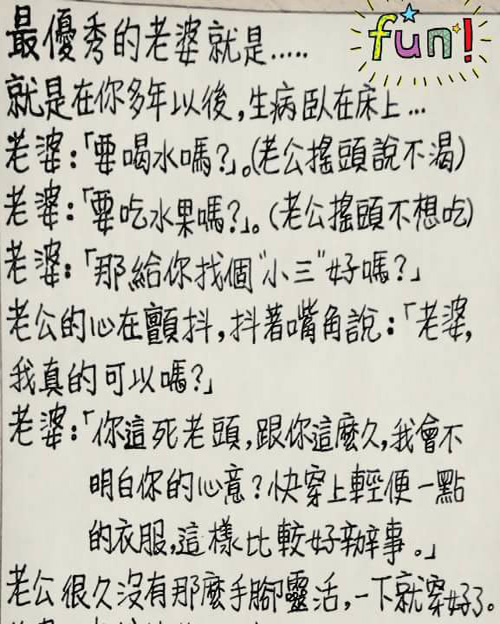 最優秀的老婆就是.....
fun!
就是在你多年以後,生病臥在床上...
老婆:「要喝水嗎?」。(老公搖頭說不渴)
老婆:「要吃水果嗎?」。(老公搖頭不想吃)
老婆:「那給你找個"小三"好嗎?」
老公的心在顫抖,抖著嘴角說:「老婆,
我真的可以嗎?」
老婆:「你這死老頭,跟你這麼久,我會不
明白你的心意?快穿上輕便一點
的衣服,這樣比較好辦事。」
老公很久沒有那麼手腳靈活,一下就穿好了。